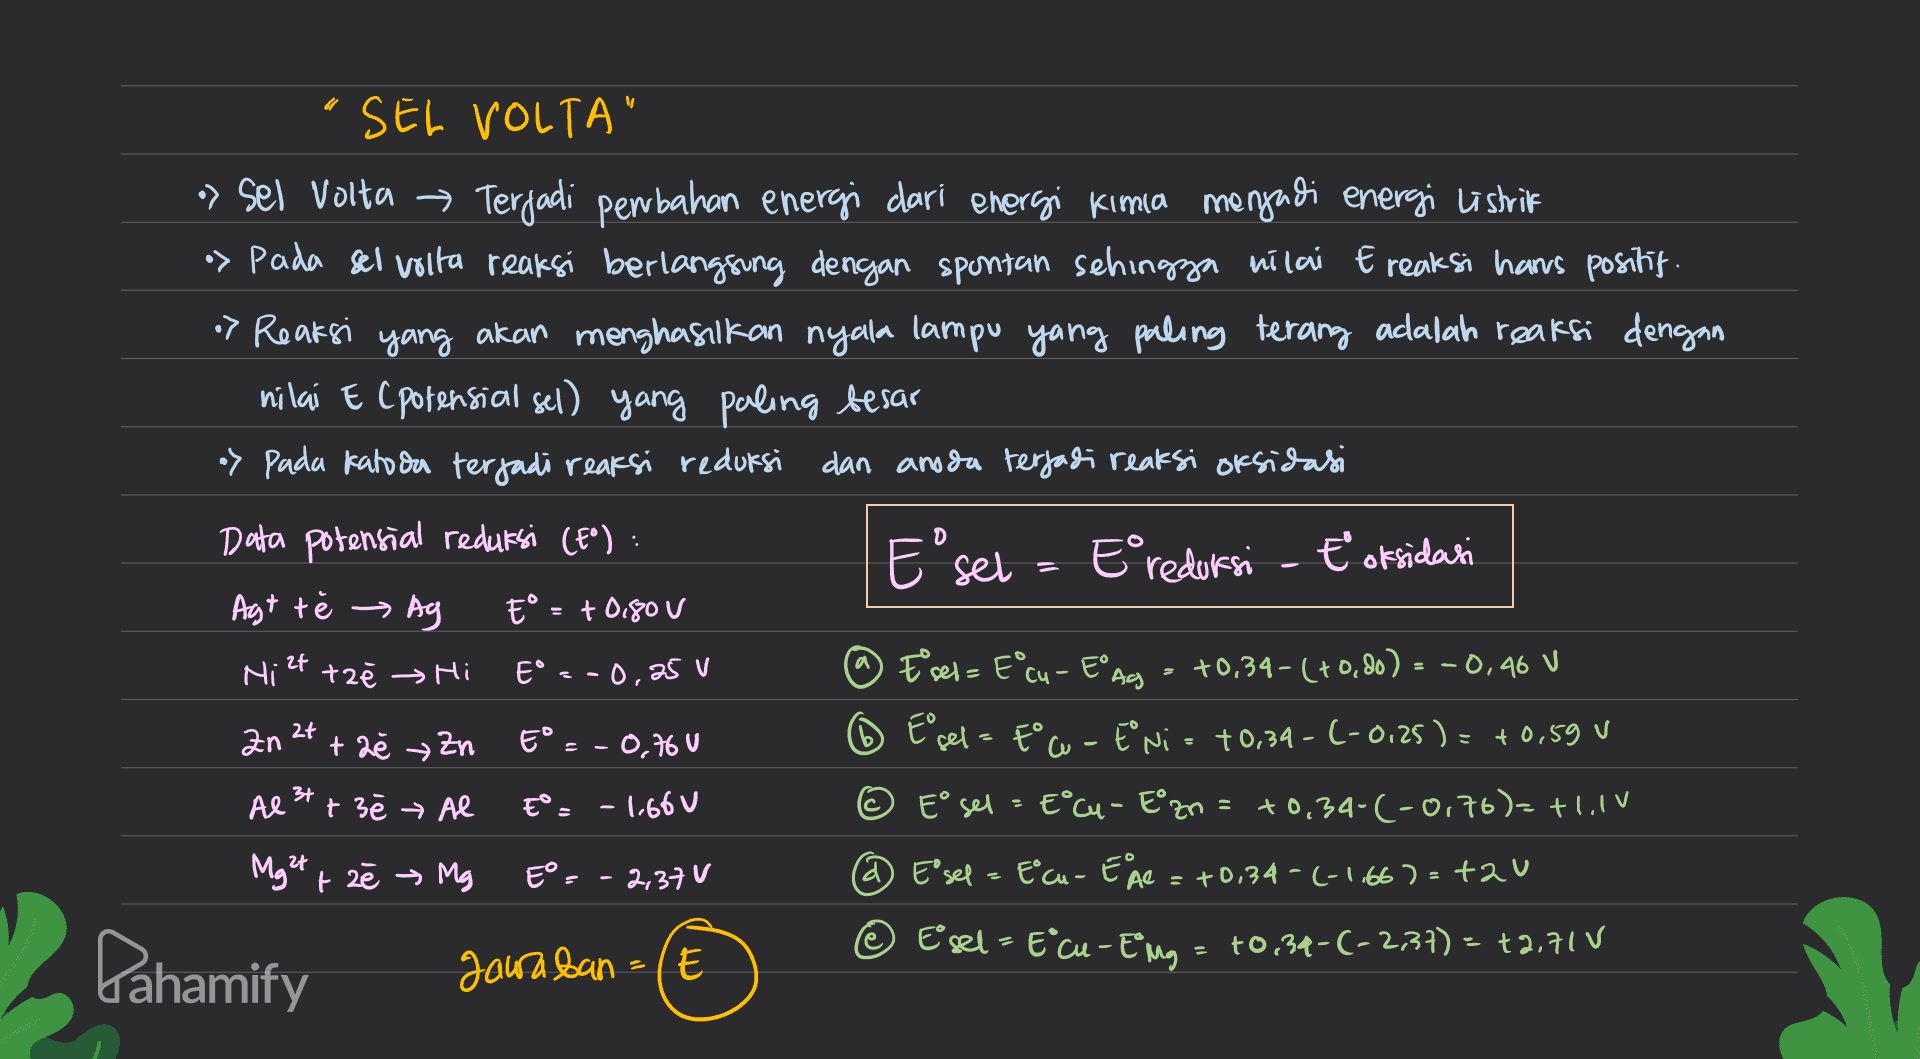 "SEL VOLTA"
•> Sel Volta → Terjadi perubahan energi dari energi kimia menjadi energi listrik
•> Pada sel volta reaksi berlangsung dengan spontan sehingga nilai E reaksi harus positif.
•> Reaksi yang akan menghasilkan nyala lampu yang paling terang adalah reaksi dengan
nilai E (potensial sel) yang paling besar
•> Pada katoda terjadi reaksi reduksi dan anoda terjadi reaksi oksidasi
Data potensial reduksi (E°) :
Ag⁺ + ē → Ag E° = +0,80 V
Ni²⁺ + 2ē → Ni E° = -0,25 V
Zn²⁺ + 2ē → Zn E° = -0,76 V
Al³⁺ + 3ē → Al E° = -1,66 V
Mg²⁺ + 2ē → Mg E° = -2,37 V
E° sel = E° reduksi - E° oksidasi
ⓐ E° sel = E° Cu - E° Ag = +0,34 - (+0,80) = -0,46 V
ⓑ E° sel = E° Cu - E° Ni = +0,34 - (-0,25) = +0,59 V
ⓒ E° sel = E° Cu - E° Zn = +0,34 - (-0,76) = +1,1 V
ⓓ E° sel = E° Cu - E° Al = +0,34 - (-1,66) = +2 V
ⓔ E° sel = E° Cu - E° Mg = +0,34 - (-2,37) = +2,71 V
Jawaban = E
Pahamify